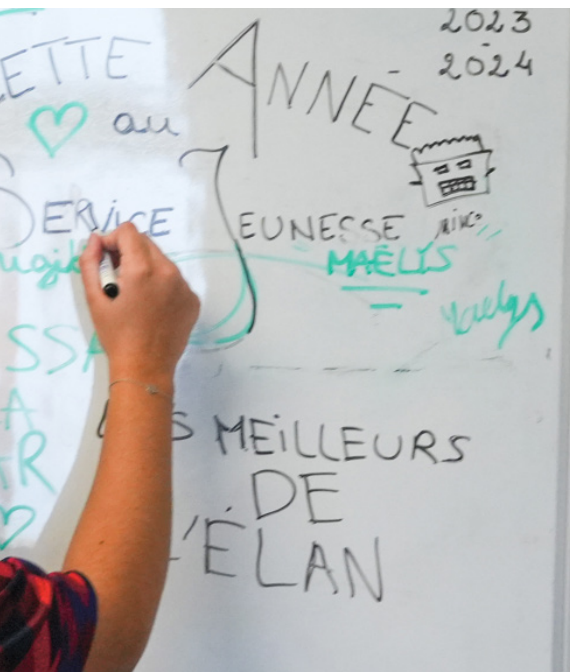 2023
-
2024
ETTE ANNÉE
♡ au
SERVICE JEUNESSE
MAËLIS
SSA
A
LES MEILLEURS
DE
L'ÉLAN